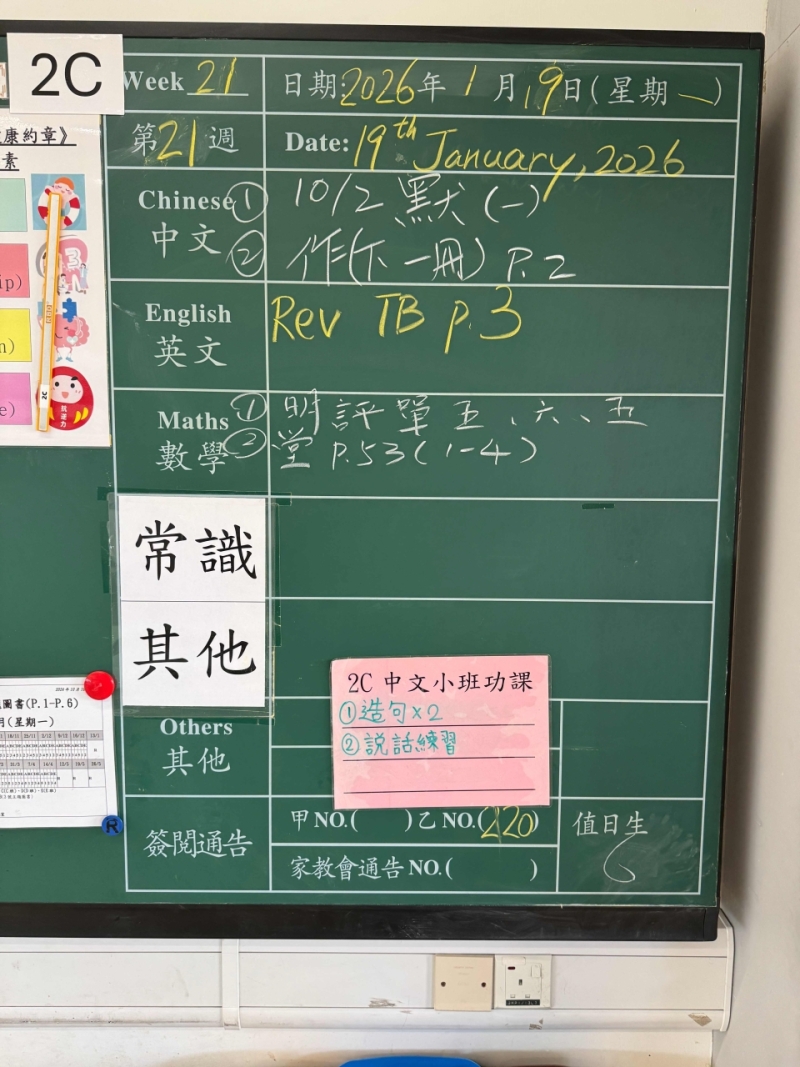 2C
Week 21
日期:2026年1月19日(星期一)
第21週
Date: 19th January, 2026
康約章》
素
Chinese
中文
① 10/2 默(一)
② 作(下一冊) P.2
ip)
English
英文
Rev TB p.3
n)
2C
抗逆力
e)
Maths
數學
① 明評單五、六、五
② 堂 P.53(1-4)
常識
其他
2C 中文小班功課
①造句x2
②說話練習
圖書(P.1-P.6)
月(星期一)
Others
其他
R
簽閱通告
甲NO.( )乙NO.(220)
家教會通告NO.( )
值日生
6